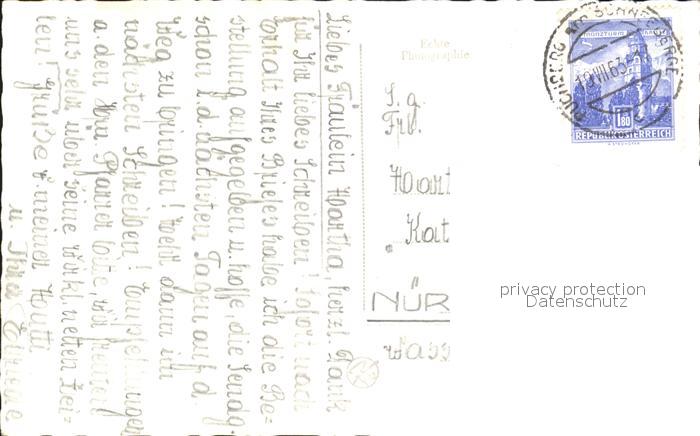 Liebes Fräulein Martha, herzl. Dank
für Ihr liebes Schreiben! Sofort nach
Erhalt Ihres Briefes habe ich die Be-
stellung aufgegeben u. hoffe, die Sendg.
schon i. d. nächsten Tagen auf d.
Weg zu bringen! Mehr dann im
nächsten Schreiben! Empfehlungen
a. den Hw. Pfarrer bitte, wir freuen
uns sehr über seine wirkl. netten Zei-
len! Grüße v. meiner Mutti
u. Ihrer
Echte
Photographie
S. g.
Frl.
Mart
Kat
NÜR
PUCHBERG AM SCHNEEBERGE
19.VIII.63
MÜNZTURM
1.80
REPUBLIK ÖSTERREICH
privacy protection
Datenschutz